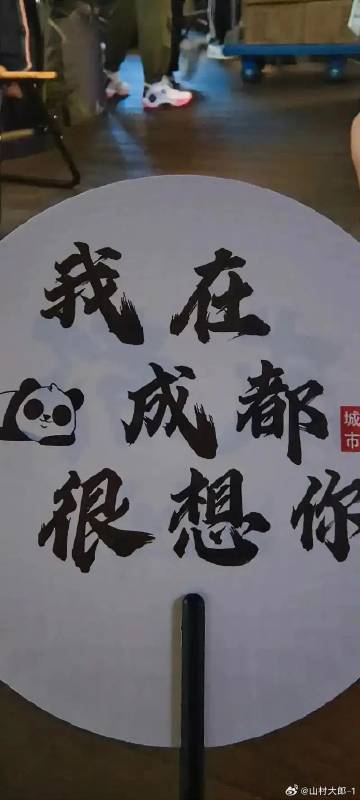 我在
成都
城市
很想你
@山村大郎-1